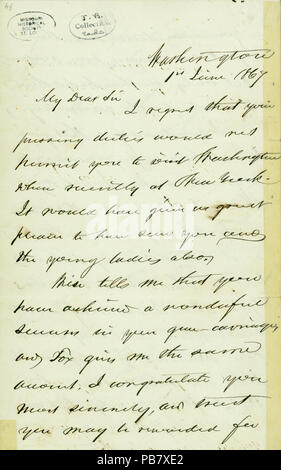 MISSOURI
HISTORICAL
SOCIETY
ST. LOUIS
J. B.
Collection
Eads
Washington
1st June 1867
My Dear Sir
I regret that your
pressing duties would not
permit you to visit Washington
when recently at New York.
It would have given us great
pleasure to have seen you and
the young ladies also.
Wise tells me that you
have achieved a wonderful
success in your gun-carriages
and Fox gives me the same
account. I congratulate you
most sincerely, and trust
you may be rewarded for
alamy
alamy stock photo
PB7XE2
www.alamy.com